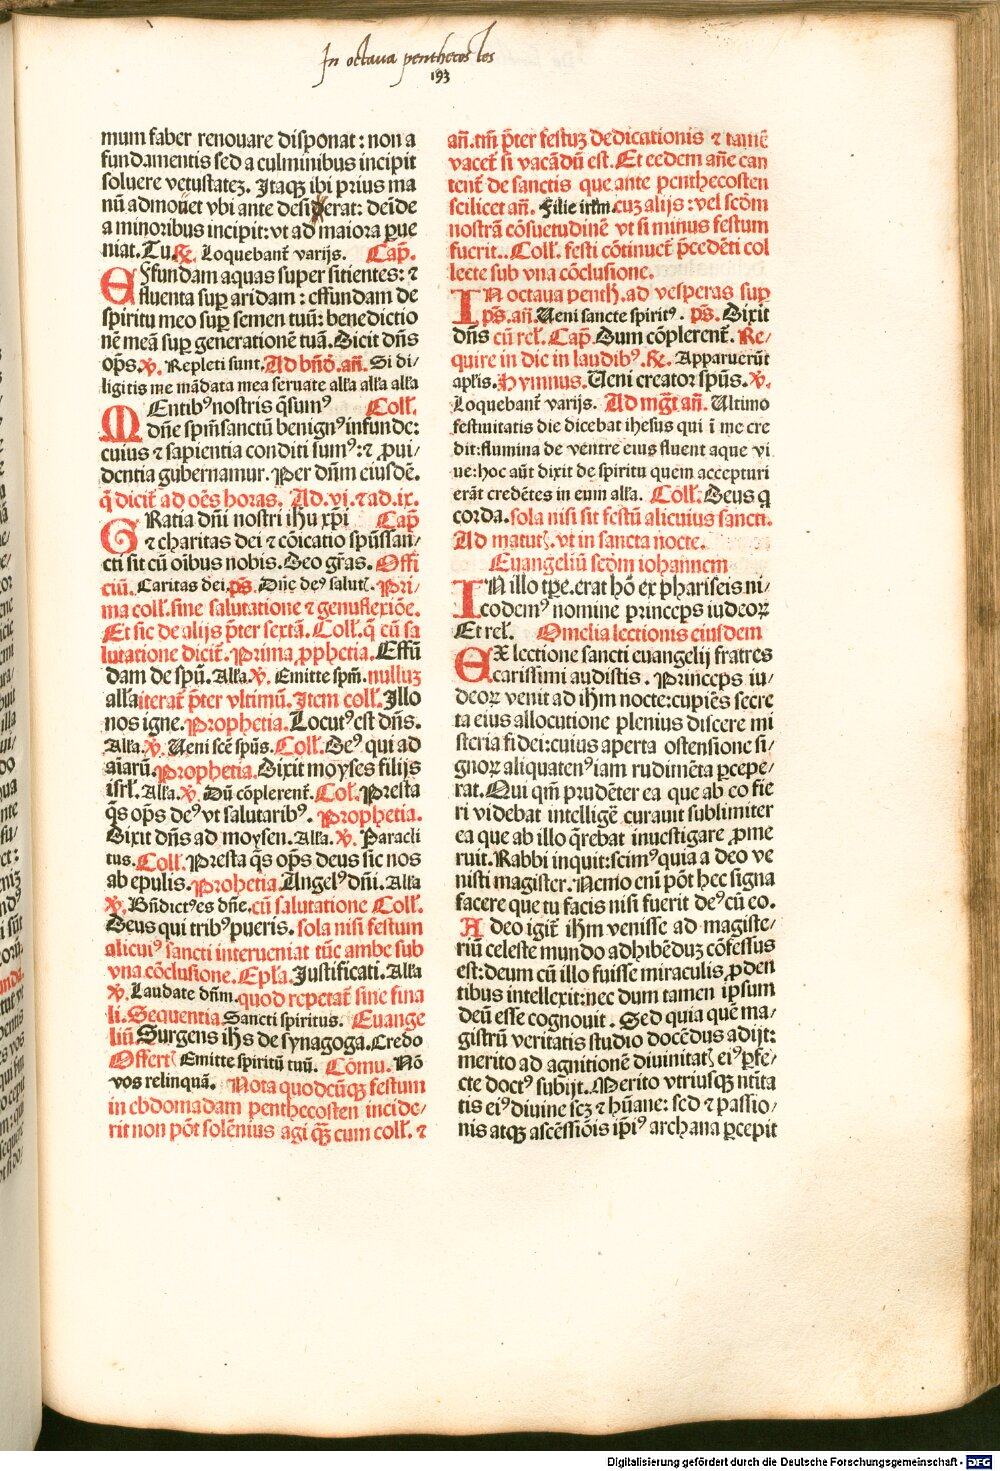 In octaua penthecostes
193
mum faber renouare disponat: non a
fundamentis sed a culminibus incipit
soluere vetustatez. Itaqꝫ ibi prius ma
nū admouet vbi ante desiderat: deīde
a minoribus incipit: vt ad maiora ꝑue
niat. Tu. ℟. Loquebant᷑ varijs. Cap̄.
Effundam aquas super sitientes: ⁊
fluenta suꝑ aridam: effundam de
spiritu meo suꝑ semen tuū: benedictio
nē meā suꝑ generationē tuā. Dicit dn̄s
op̄s. ℣. Repleti sunt. Ad bn̄d. an̄. Si di/
ligitis me mādata mea seruate alła alła alła
MEntibꝰ nostris q̄sumꝰ Coll.
dn̄e spm̄sanctū benignꝰ infunde:
cuius ⁊ sapientia conditi sumꝰ: ⁊ ꝓui/
dentia gubernamur. Per dn̄m eiusdē.
q̄ dicit᷑ ad oēs horas. Ad .vi. ⁊ ad .ix.
GRatia dn̄i nostri ihu xp̄i Cap̄
⁊ charitas dei ⁊ cōicatio spūssan/
cti sit cū oībus nobis. Deo gr̄as. Offi
ciū. Caritas dei. ps̄. Dn̄e deꝰ salut᷑. Pri/
ma coll. sine salutatione ⁊ genuflexiōe.
Et sic de alijs p̄ter sextā. Coll. q̄ cū sa
lutatione dicit᷑. Prima ꝓphetia. Effū
dam de spū. Alła. ℣. Emitte spm̄. nulluz
alła iterat᷑ p̄ter vltimū. Item coll. Illo
nos igne. Prophetia. Locutꝰ est dn̄s.
Alła. ℣. Ueni sce sp̄us. Coll. Deꝰ qui ad
aīarū. Prophetia. Dixit moyses filijs
isrl. Alła. ℣. Dū cōplerent᷑. Col. Presta
q̄s op̄s deꝰ vt salutaribꝰ. Prophetia.
Dixit dn̄s ad moysen. Alła. ℣. Paracli
tus. Coll. Presta q̄s op̄s deus sic nos
ab epulis. Prohetia. Angelꝰ dn̄i. Alła
℣. Bn̄dictꝰ es dn̄e. cū salutatione Coll.
Deus qui tribꝰ pueris. sola nisi festum
alicuiꝰ sancti interueniat tūc ambe sub
vna cōclusione. Epła. Justificati. Alła
℣. Laudate dn̄m. quod repetat᷑ sine fina
li. Sequentia Sancti spiritus. Euange
liū. Surgens ihs de synagoga. Credo
Offert᷑ Emitte spiritū tuū. Cōmu. Nō
vos relinquā. Nota quodcūqꝫ festum
in ebdomadam penthecosten incide/
rit non pōt solēnius agi qꝫ cum coll. ⁊
an̄. tm̄ p̄ter festuz dedicationis ⁊ tamē
vacet᷑ si vacādū est. Et eedem an̄e can
tent᷑ de sanctis que ante penthecosten
scilicet an̄. Filie irłm. cuz alijs: vel scdm̄
nostrā cōsuetudinē vt si minus festum
fuerit.. Coll. festi cōtinuet᷑ p̄cedēti col
lecte sub vna cōclusione.
IN octaua penth. ad vesperas suꝑ
ps̄. an̄. Ueni sancte spiritꝰ. ps̄. Dixit
dn̄s cū rel. Cap̄. Dum cōplerent᷑. Re/
quire in die in laudibꝰ. ℟. Apparuerūt
apłis. Hymnus. Ueni creator spūs. ℣.
Loquebant᷑ varijs. Ad mgt᷑ an̄. Ultimo
festiuitatis die dicebat ihesus qui ī me cre
dit: flumina de ventre eius fluent aque vi
ue: hoc aūt dixit de spiritu quem accepturi
erāt credētes in eum alła. Coll. Deus q
corda. sola nisi sit festū alicuius sancti.
Ad matut᷑. vt in sancta nocte.
Euangeliū scdm iohannem
IN illo tꝑe. erat hō ex phariseis ni/
codemꝰ nomine princeps iudeoꝝ
Et rel. Omelia lectionis eiusdem
EX lectione sancti euangelij fratres
carissimi audistis. Princeps iu/
deoꝝ venit ad ihm nocte: cupiēs secre
ta eius allocutione plenius discere mi
steria fidei: cuius aperta ostensione si/
gnoꝝ aliquatenꝰ iam rudimēta ꝑcepe/
rat. Qui qm̄ prudēter ea que ab eo fie
ri videbat intelligē curauit sublimiter
ea que ab illo q̄rebat inuestigare ꝓme
ruit. Rabbi inquit: scimꝰ quia a deo ve
nisti magister. Nemo eni᷑ pōt hec signa
facere que tu facis nisi fuerit deꝰ cū eo.
Adeo igit᷑ ihm venisse ad magiste/
riū celeste mundo adhibēduz cōfessus
est: deum cū illo fuisse miraculis ꝓden
tibus intellexit: nec dum tamen ipsum
deū esse cognouit. Sed quia quē ma/
gistrū veritatis studio docēdus adijt:
merito ad agnitionē diuinitat᷑ eiꝰ ꝑfe/
cte doctꝰ subijt. Merito vtriusqꝫ ntita
tis eiꝰ diuine scꝫ ⁊ hūane: sed ⁊ passio/
nis atqꝫ ascēssiōis ip̄iꝰ archana ꝑcepit
Digitalisierung gefördert durch die Deutsche Forschungsgemeinschaft - DFG